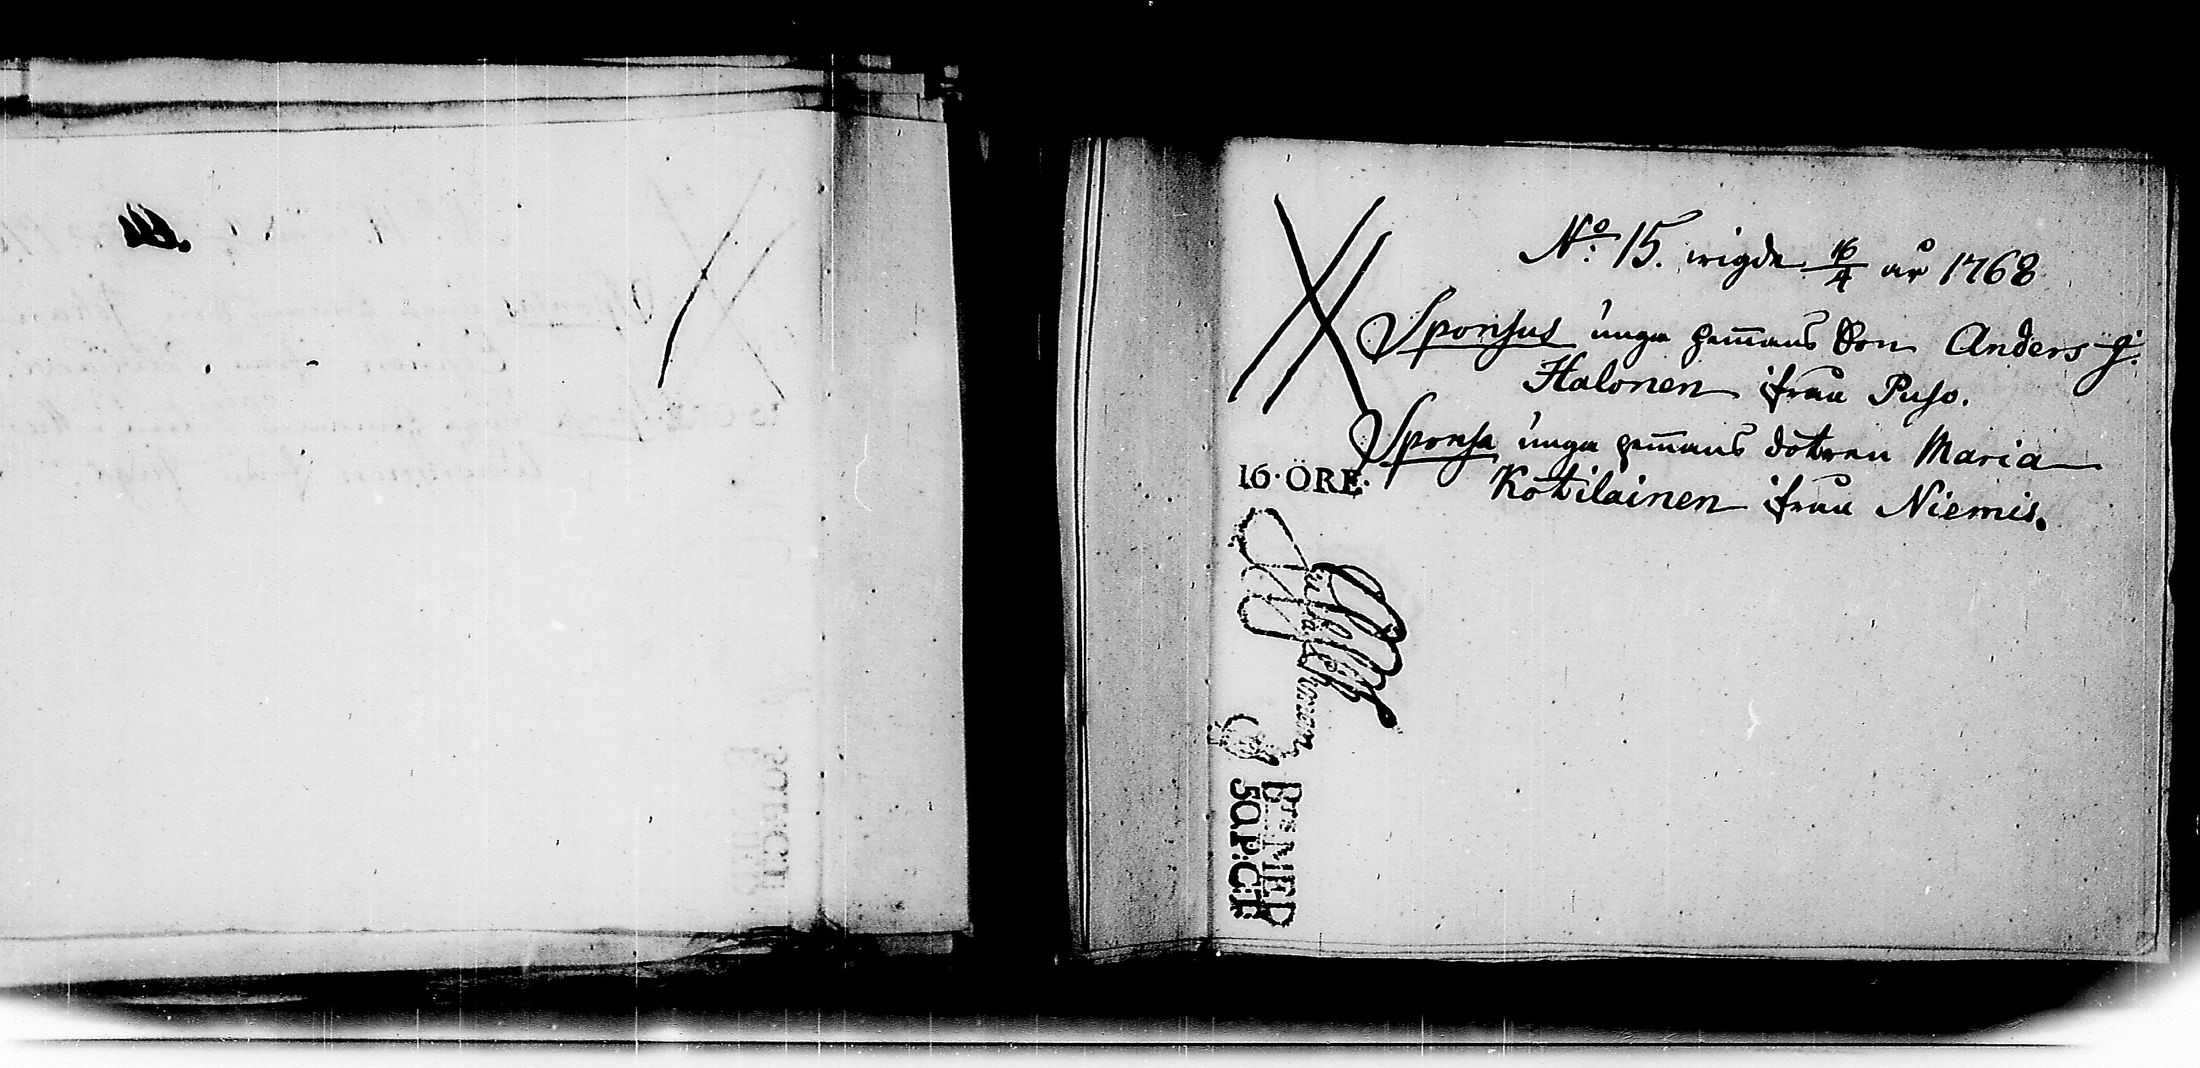 No: 15. wigde 16/4 år 1768
Sponsus unga hem̄ans Son Anders J:
Halonen ifrån Puso.
Sponsa unga hem̄ans dottren Maria
Kotilainen ifrån Niemis.
16·ÖRE·
50.P:C:T